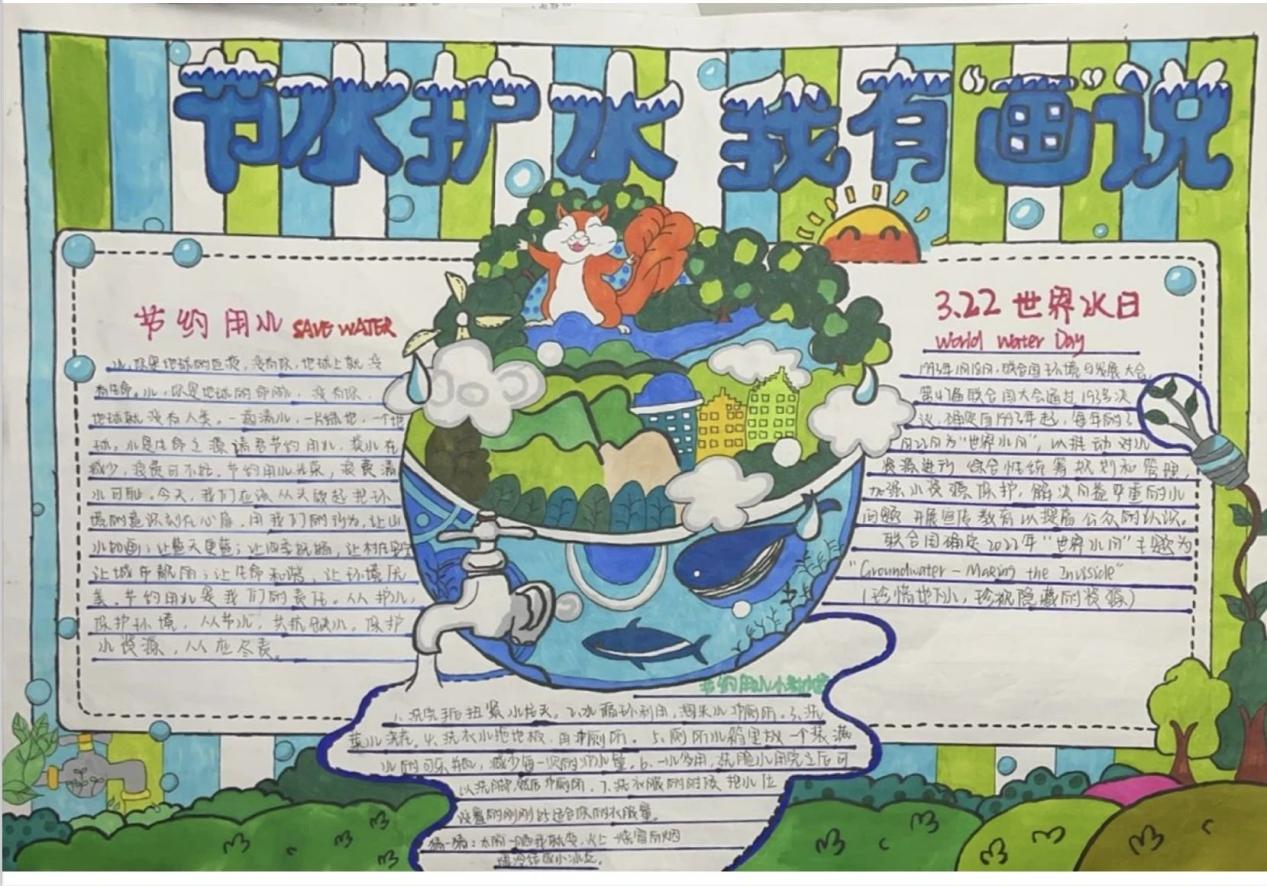 节水护水 我有“画”说
节约用水 SAVE WATER
水,你是地球的血液,没有你,地球上就没
有生命。水,你是地球的命脉,没有你,
地球就没有人类。一滴清水,一片绿地,一个地
球。水是生命之源请君节约用水。淡水在
减少,浪费可不能。节约用水光荣,浪费清
水可耻。今天,我们应该从头做起把环
境的意识刻在心底,用我们的行为,让山
水如画;让蓝天更蓝;让四季
让城市靓丽;让生命和谐,让环境优
美。节约用水是我们的责任。从护水,
保护环境,从节水,共抗缺水。保护
水资源,人人应尽责。
3.22 世界水日
World Water Day
1993年1月18日,联合国环境与发展大会
第47届联合国大会通过193号决
议,确定自1993年起,每年的3
月22日为“世界水日”,以推动对水
资源进行综合性统筹规划和管理,
加强水资源保护,解决日益严重的水
问题,开展宣传教育以提高公众的认识。
联合国确定2022年“世界水日”主题为
“Groundwater－Making the Invisible”
(珍惜地下水,珍视隐藏的资源)
节约用水小
1、洗完手后扭紧水龙头。2、水循环利用,淘米水冲厕所。3、洗
菜水浇花。4、洗衣水拖地板,再冲厕所。5、厕所水箱里放一个装满
水的可乐瓶,减少每一次的冲水量。6、一水多用,洗脸水用完之后可
以洗脚,然后冲厕所。7、洗衣服的时候把水位
设置的刚刚好适合你的衣服量。
猜一猜: